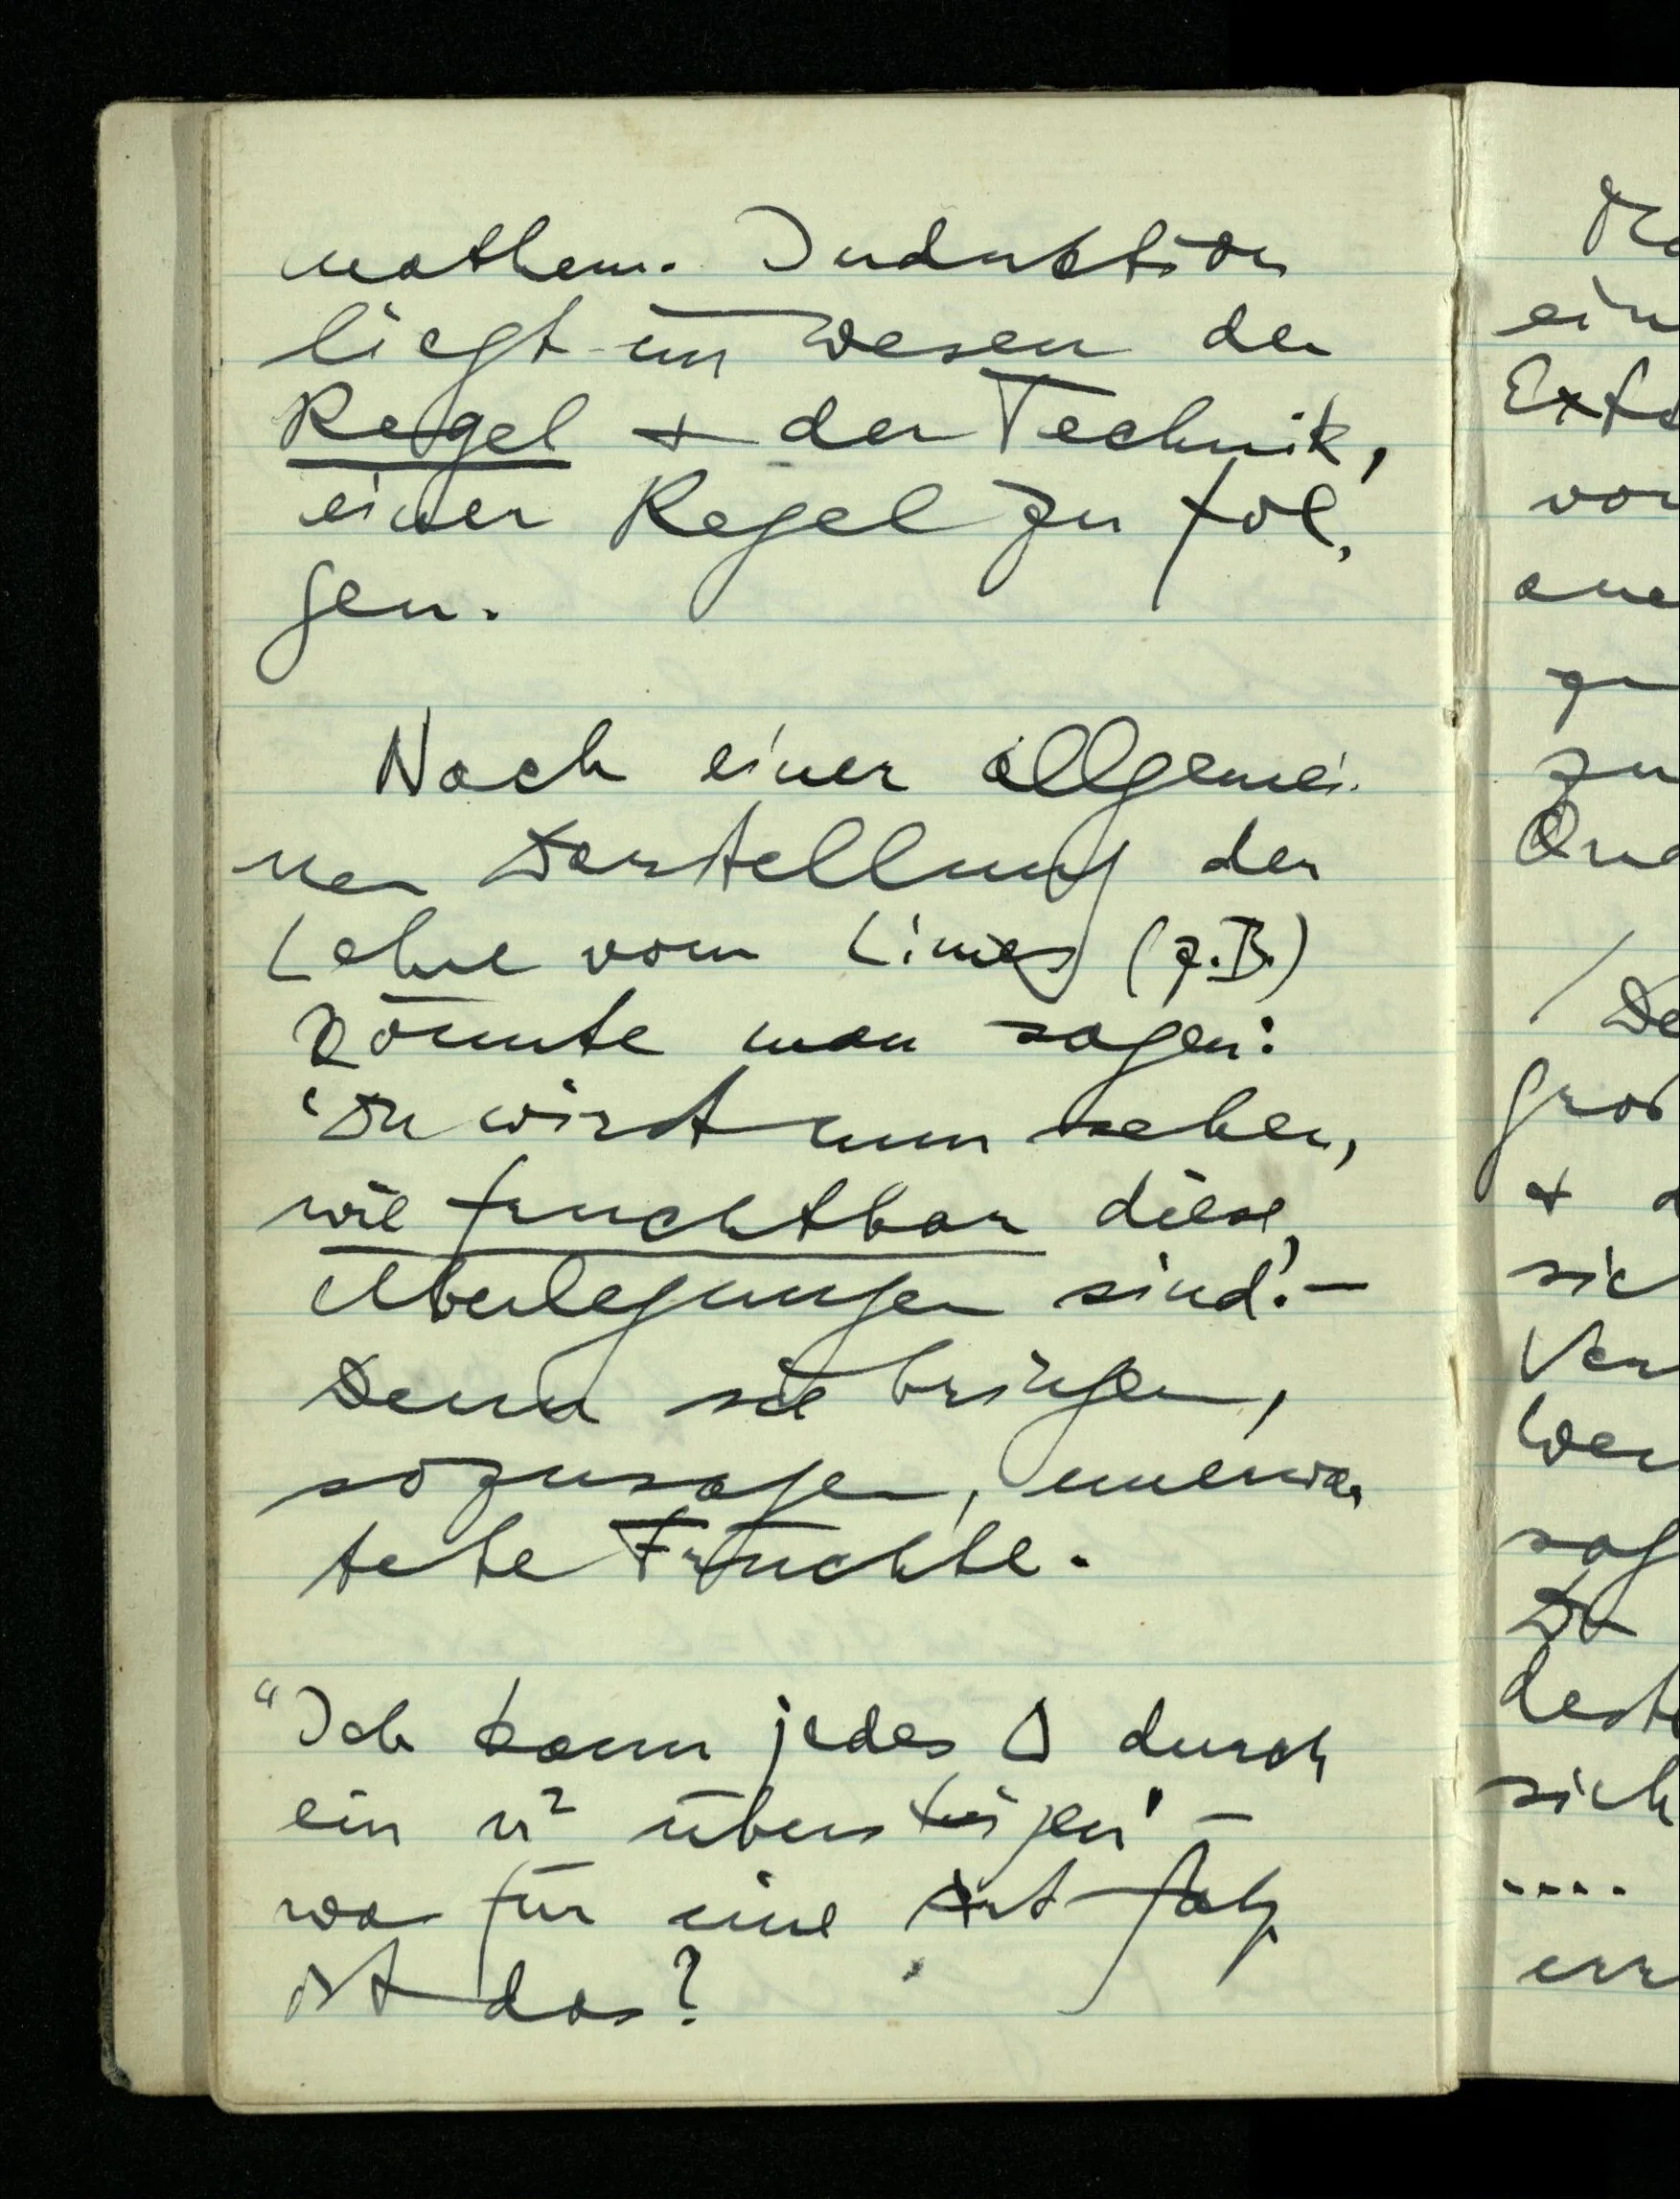 mathem. Induktion
liegt im Wesen der
Regel + der Technik,
einer Regel zu fol-
gen.
Nach einer allgemei-
nen Darstellung der
Lehre vom Limes (z.B.)
könnte man sagen:
"Du wirst nun sehen,
wie fruchtbar diese
Überlegungen sind! –
Denn sie bringen,
sozusagen, unerwar
tete Früchte.
"Ich kann jedes Δ durch
ein n² übersteigen" –
was für eine Art Satz
ist das?